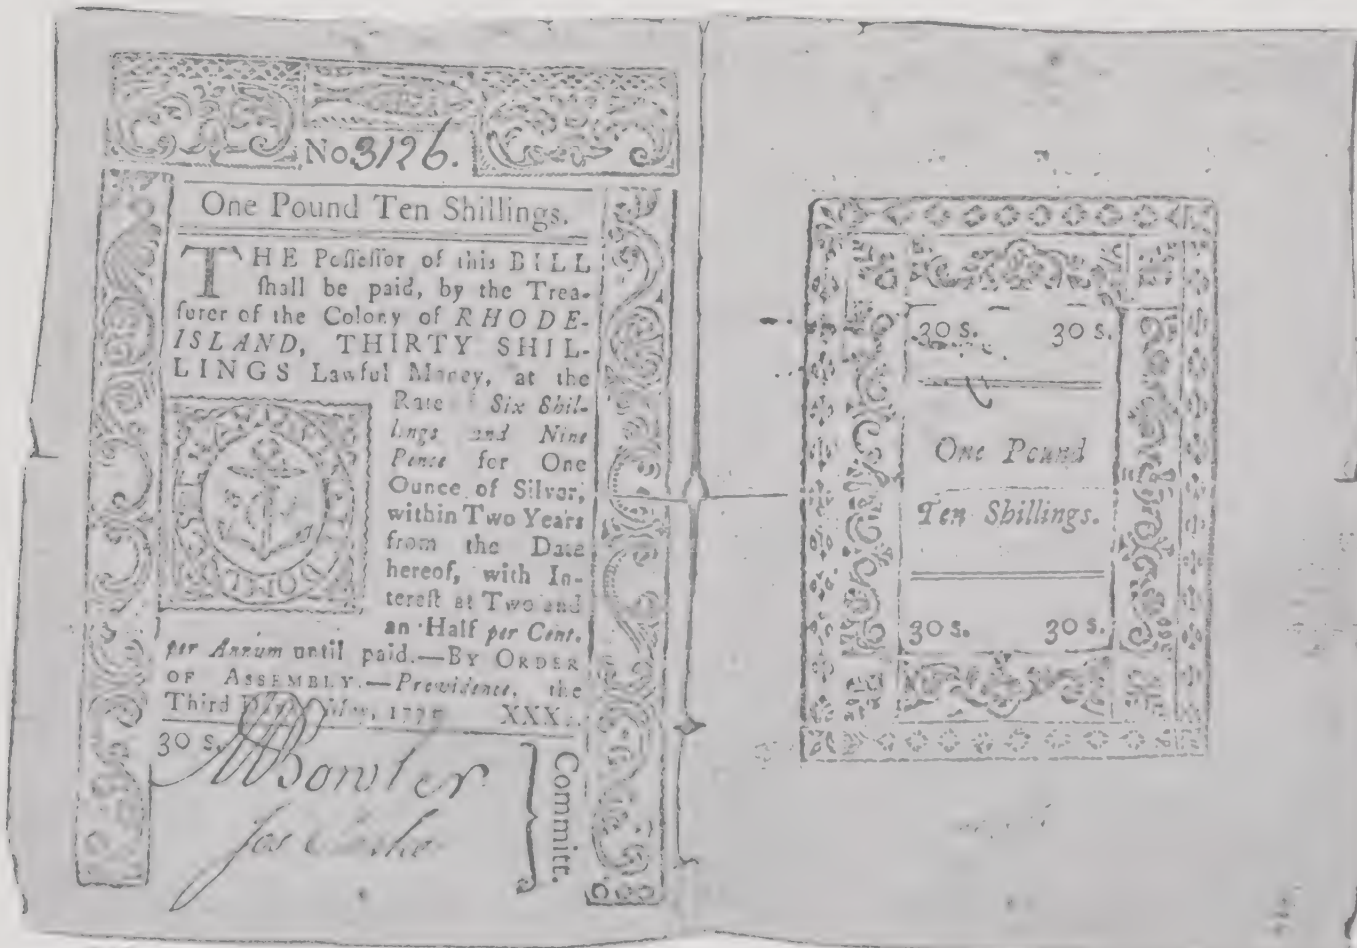 No 3126.
One Pound Ten Shillings.
THE Poſſeſſor of this BILL
ſhall be paid, by the Trea-
ſurer of the Colony of RHODE-
ISLAND, THIRTY SHIL-
LINGS Lawful Money, at the
Rate of Six Shil-
lings and Nine
Pence for One
Ounce of Silver,
within Two Years
from the Date
hereof, with In-
tereſt at Two and
an Half per Cent.
per Annum until paid.—BY ORDER
OF ASSEMBLY.—Providence, the
Third May, XXX
30 s.
Bowler
Jos Clarke
Committ.
30 s. 30 s.
One Pound
Ten Shillings.
30 s. 30 s.